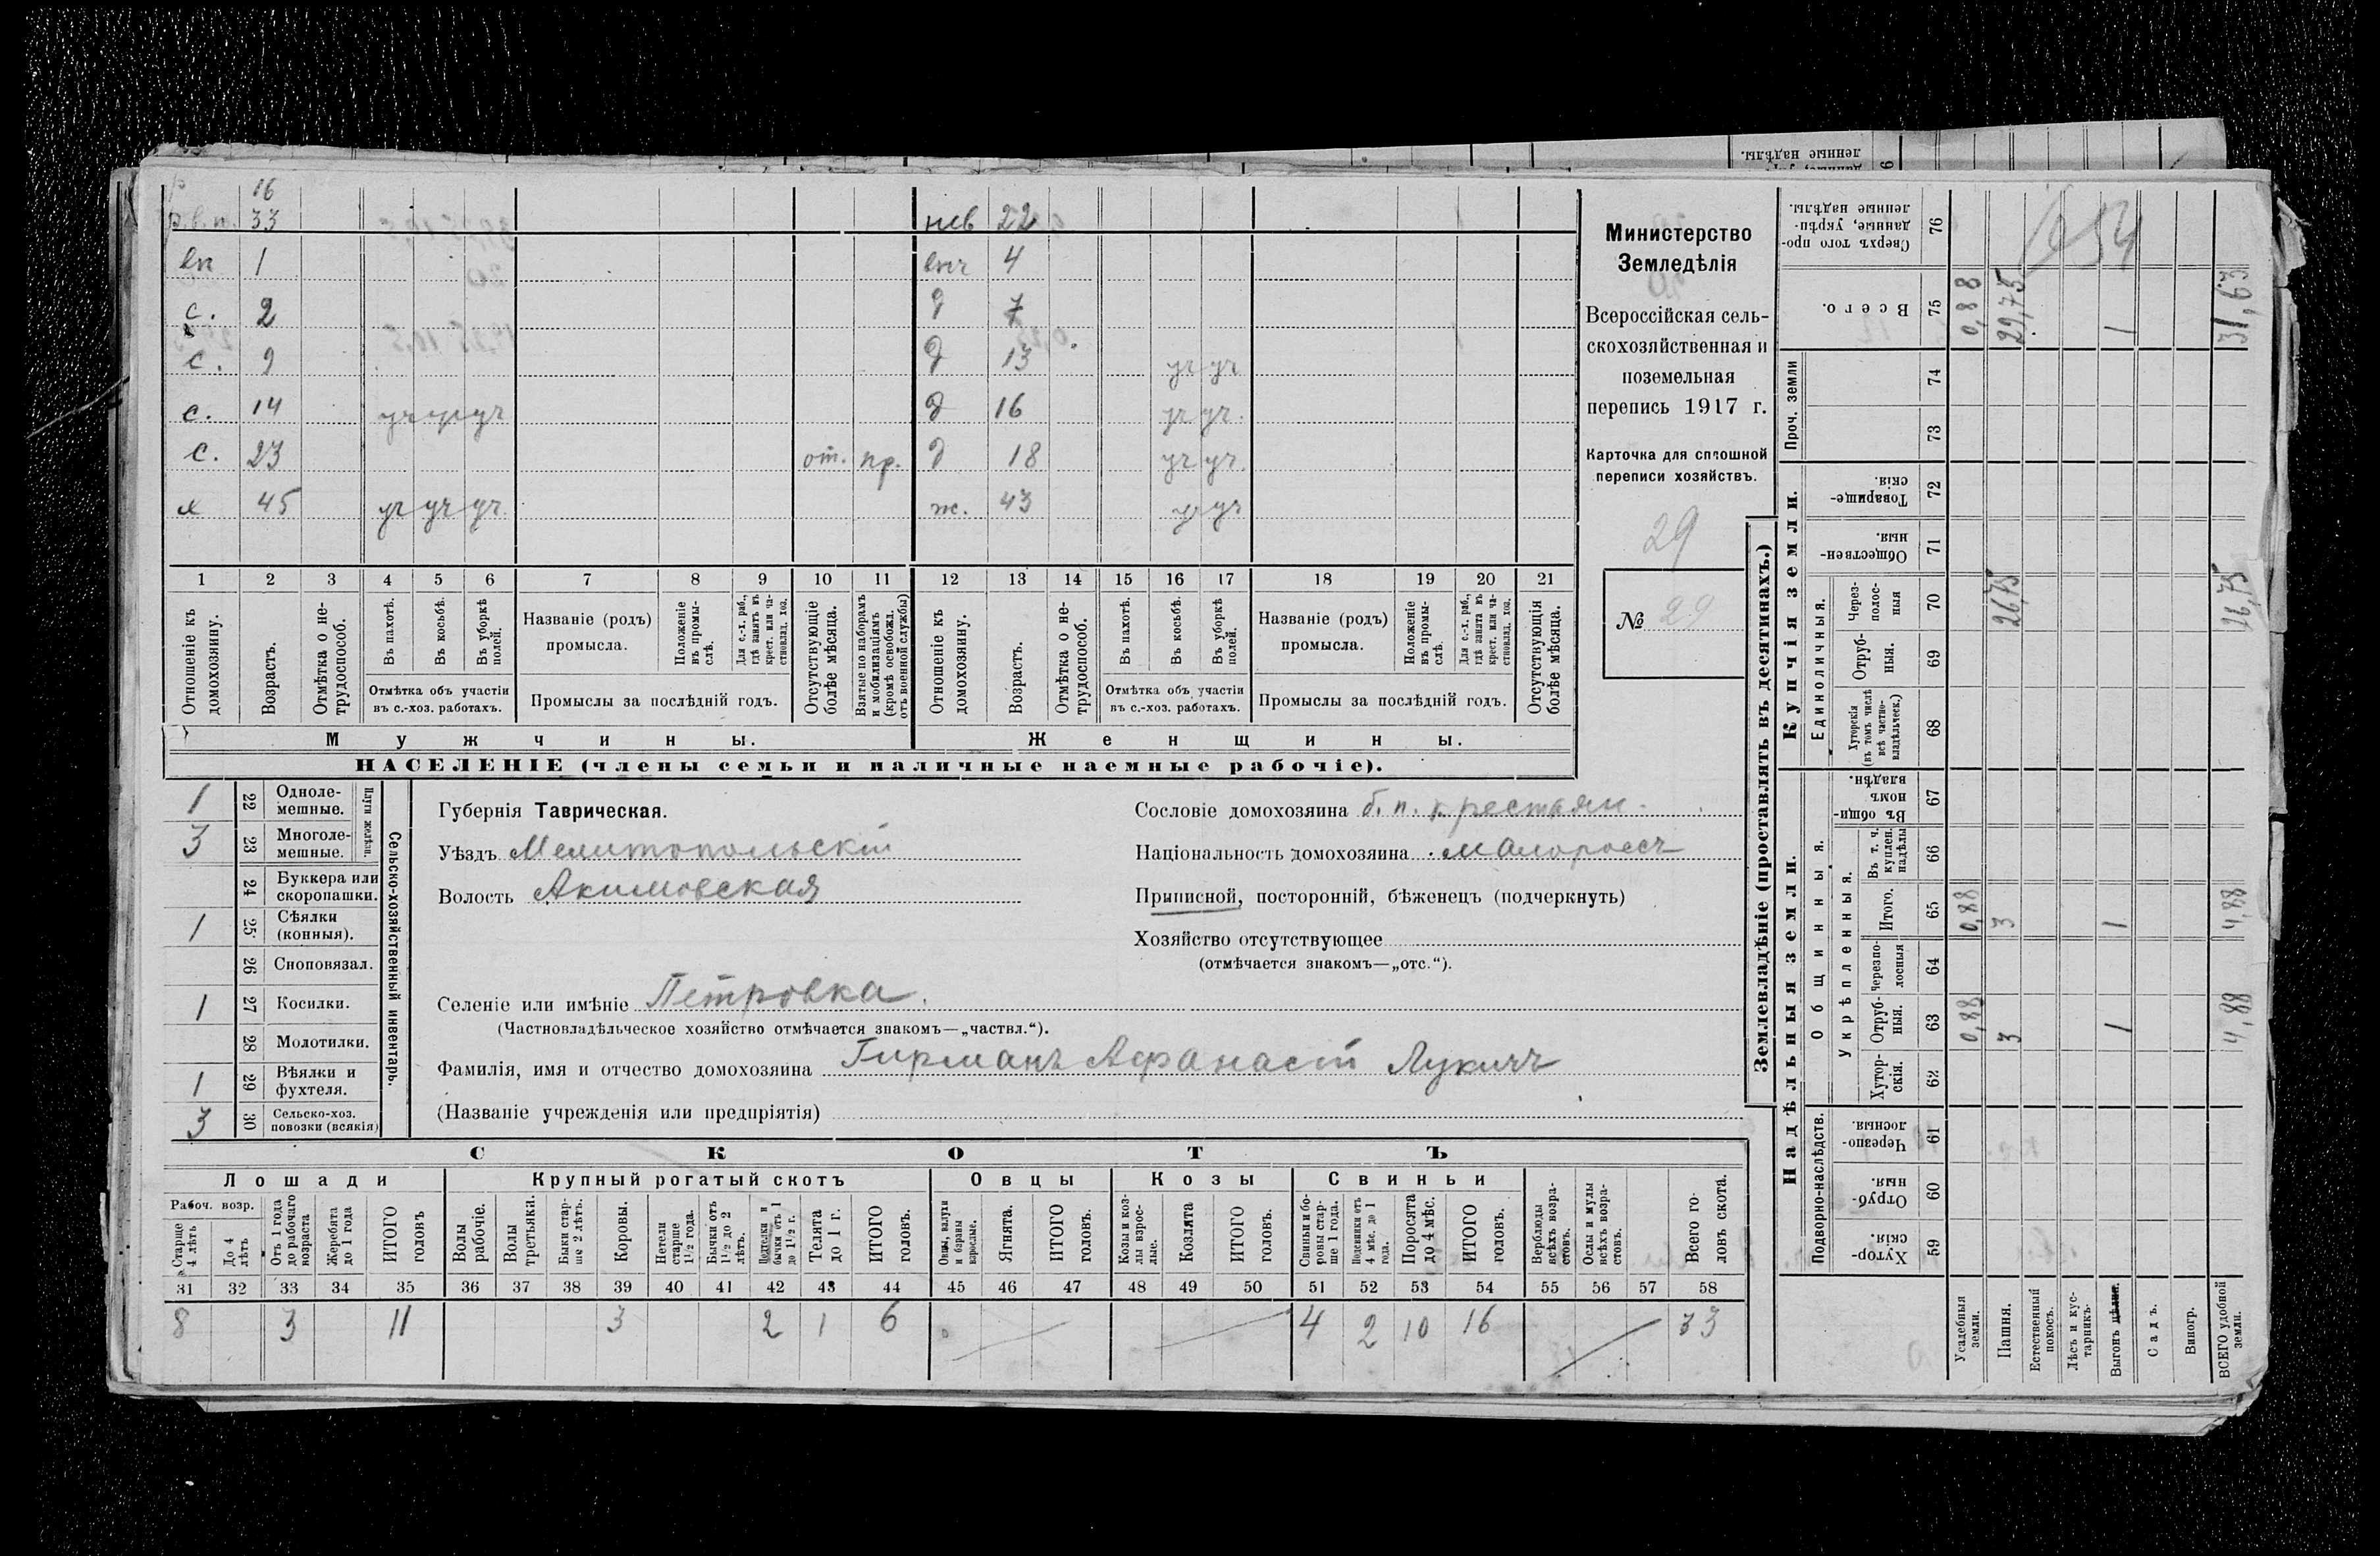 16
р.в.п. 33 нев 22
вп 1 внч 4
с. 2 д 7
с. 9 д 13 уч уч
с. 14 уч уч уч д 16 уч уч.
с. 23 от. пр. д 18 уч уч.
х 45 уч уч уч. ж. 43 у уч
1 2 3 4 5 6 7 8 9 10 11 12 13 14 15 16 17 18 19 20 21
Отношеніе къ домохозяину.
Возрастъ.
Отмѣтка о не-трудоспособ.
Въ пахотѣ.
Въ косьбѣ.
Въ уборкѣ полей.
Отмѣтка объ участіи
въ с.-хоз. работахъ.
Названіе (родъ)
промысла.
Положеніе въ промы-слѣ.
Для с.-х. раб., гдѣ занятъ въ крест. или ча-стновлад. хоз.
Промыслы за послѣдній годъ.
Отсутствующіе болѣе мѣсяца.
Взятые по наборамъ и мобилизаціямъ (кромѣ освобожд. отъ военной службы)
Отношеніе къ домохозяину.
Возрастъ.
Отмѣтка о не-трудоспособ.
Въ пахотѣ.
Въ косьбѣ.
Въ уборкѣ полей.
Отмѣтка объ участіи
въ с.-хоз. работахъ.
Названіе (родъ)
промысла.
Положеніе въ промы-слѣ.
Для с.-х. раб., гдѣ занята въ крест. или ча-стновлад. хоз.
Промыслы за послѣдній годъ.
Отсутствующія болѣе мѣсяца.
Мужчины. Женщины.
НАСЕЛЕНІЕ (члены семьи и наличные наемные рабочіе).
Министерство
Земледѣлія
Всероссійская сель-
скохозяйственная и
поземельная
перепись 1917 г.
Карточка для сплошной
переписи хозяйствъ.
29
№ 29
1 22 Одноле-мешные.
3 23 Многоле-мешные.
Плуги желѣзн.
24 Буккера или скоропашки.
1 25 Сѣялки (конныя).
26 Сноповязал.
1 27 Косилки.
28 Молотилки.
1 29 Вѣялки и фухтеля.
3 30 Сельско-хоз. повозки (всякія)
Сельско-хозяйственный инвентарь.
Губернія Таврическая.
Уѣздъ Мелитопольскій
Волость Акимовская
Селеніе или имѣніе Петровка.
(Частновладѣльческое хозяйство отмѣчается знакомъ—„частвл.“).
Фамилія, имя и отчество домохозяина Гирманъ Афанасій Лукичъ
(Названіе учрежденія или предпріятія)
Сословіе домохозяина б. п. крестьян.
Національность домохозяина малороссъ
Приписной, посторонній, бѣженецъ (подчеркнуть)
Хозяйство отсутствующее
(отмѣчается знакомъ—„отс.“).
СКОТЪ
Лошади Крупный рогатый скотъ Овцы Козы Свиньи
Рабоч. возр.
Старше 4 лѣтъ
До 4 лѣтъ
Отъ 1 года до рабочаго возраста
Жеребята до 1 года
ИТОГО головъ
Волы рабочіе.
Волы третьяки.
Быки стар-ше 2 лѣтъ.
Коровы.
Нетели старше 1 1/2 года.
Бычки отъ 1 1/2 до 2 лѣтъ.
Подтелки и бычки отъ 1 до 1 1/2 г.
Телята до 1 г.
ИТОГО головъ.
Овцы, валухи и бараны взрослые.
Ягнята.
ИТОГО головъ.
Козы и коз-лы взрос-лые.
Козлята
ИТОГО головъ.
Свиньи и бо-ровы стар-ше 1 года.
Подсвинки отъ 4 мѣс. до 1 года.
Поросята до 4 мѣс.
ИТОГО головъ.
Верблюды всѣхъ возра-стовъ.
Ослы и мулы всѣхъ возра-стовъ.
Всего го-ловъ скота.
31 32 33 34 35 36 37 38 39 40 41 42 43 44 45 46 47 48 49 50 51 52 53 54 55 56 57 58
8 3 11 3 2 1 6 4 2 10 16 33
Землевладѣніе (проставлять въ десятинахъ.)
Надѣльныя земли. Купчія земли.
Подворно-наслѣдств. Общинныя. Единоличныя. Проч. земли
Укрѣпленныя.
Хутор-скія. 59
Отруб-ныя. 60
Черезпо-лосныя. 61
Хутор-скія. 62
Отруб-ныя. 63 0,88 3 1 4,88
Черезпо-лосныя 64
Итого. 65 0,88 3 1 4,88
Въ т. ч. куплен. надѣлы 66
Въ общи-номъ владѣн. 67
Хуторскія (въ томъ числѣ всѣ частно-владѣльческ.) 68
Отруб-ныя. 69
Через-полос-ныя 70 26,75 26,75
Обществен-ныя. 71
Товарище-скія. 72
73
74
Всего. 75 0,88 29,75 1 31,63
Сверхъ того про-данные, укрѣп-ленные надѣлы. 76
54
Усадебныя земли.
Пашня.
Естественный покосъ.
Лѣсъ и кус-тарникъ.
Выгонъ
Садъ.
Виногр.
ВСЕГО удобной земли.